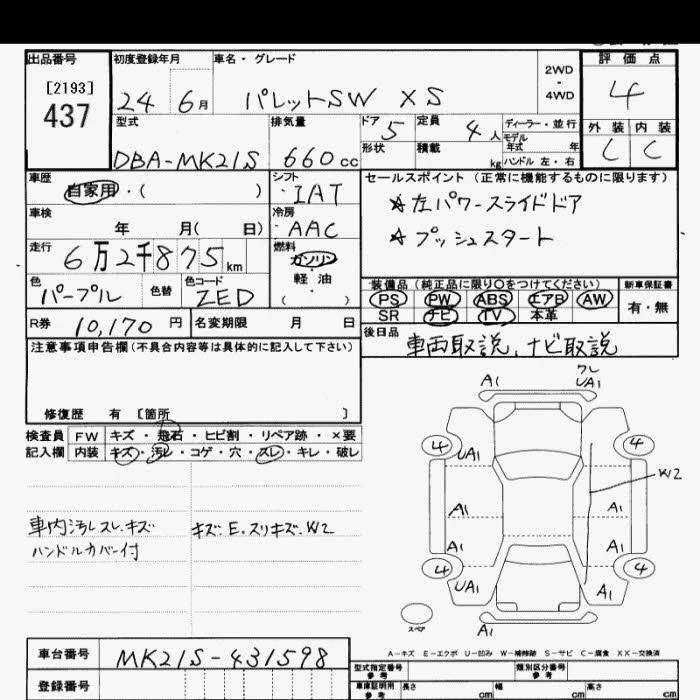 出品番号 初度登録年月 車名・グレード 2WD・4WD 評価点
[2193]
437
24 6月 パレットSW XS 4
型式 排気量 ドア 5 定員 4人 ディーラー・並行 外装 内装
DBA-MK21S 660cc 形状 積載 kg モデル年式 年 ハンドル 左・右 C C
車歴 シフト セールスポイント(正常に機能するものに限ります)
自家用・( ) IAT ☆左パワースライドドア
車検 冷房 ☆プッシュスタート
年 月( 日) AAC
走行 燃料
6万2千875km ガソリン
軽油
( )
色 色替 色コード 装備品(純正品に限り〇をつけてください) 新車保証書
パープル ZED PS PW ABS エアB AW 有・無
SR ナビ TV 本革
R券 10,170円 名変期限 月 日 後日品
車両取説、ナビ取説
注意事項申告欄(不具合内容等は具体的に記入して下さい)
修復歴 有 [箇所 ]
検査員 FW キズ・飛石・ヒビ割・リペア跡・×要
記入欄 内装 キズ・汚レ・コゲ・穴・スレ・キレ・破レ
車内汚レスレ.キズ キズ.E.スリキズ.W2
ハンドルカバー付
A1 ワレ
UA1
4 4
UA1
W2
A1 A1
A1 A1
4 4
UA1
A1
スペア
A-キズ E-エクボ U-凹み W-補修跡 S-サビ C-腐食 XX-交換済
車台番号 MK21S-431598 型式指定番号 参考 類別区分番号 参考
登録番号 車庫証明用 参考 長さ cm 幅 cm 高さ cm